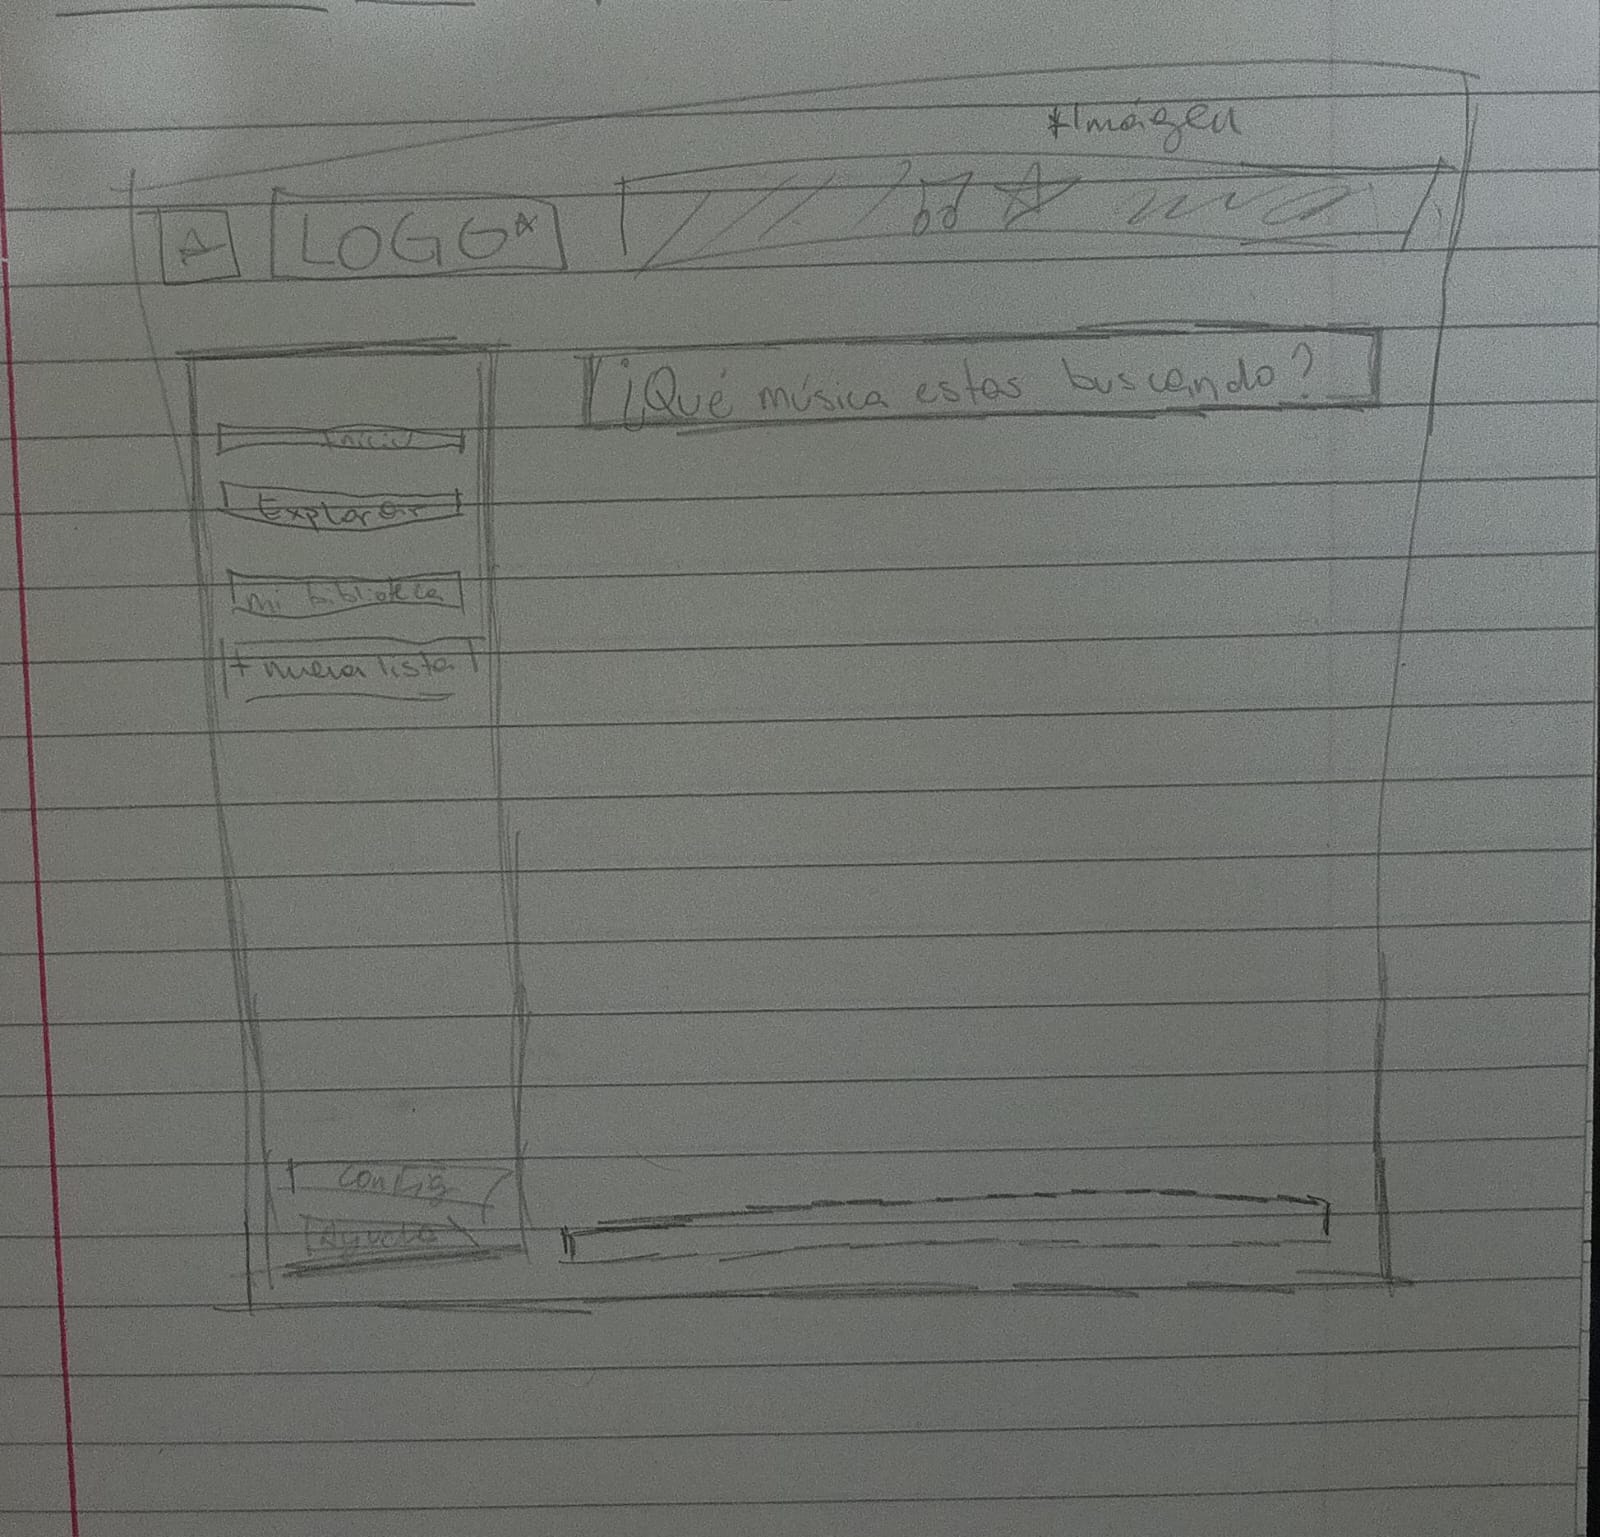 *Imágen
LOGO*
¿Qué música estas buscando?
Inicio
Explorar
mi biblioteca
+ nueva lista
Config
Ayuda